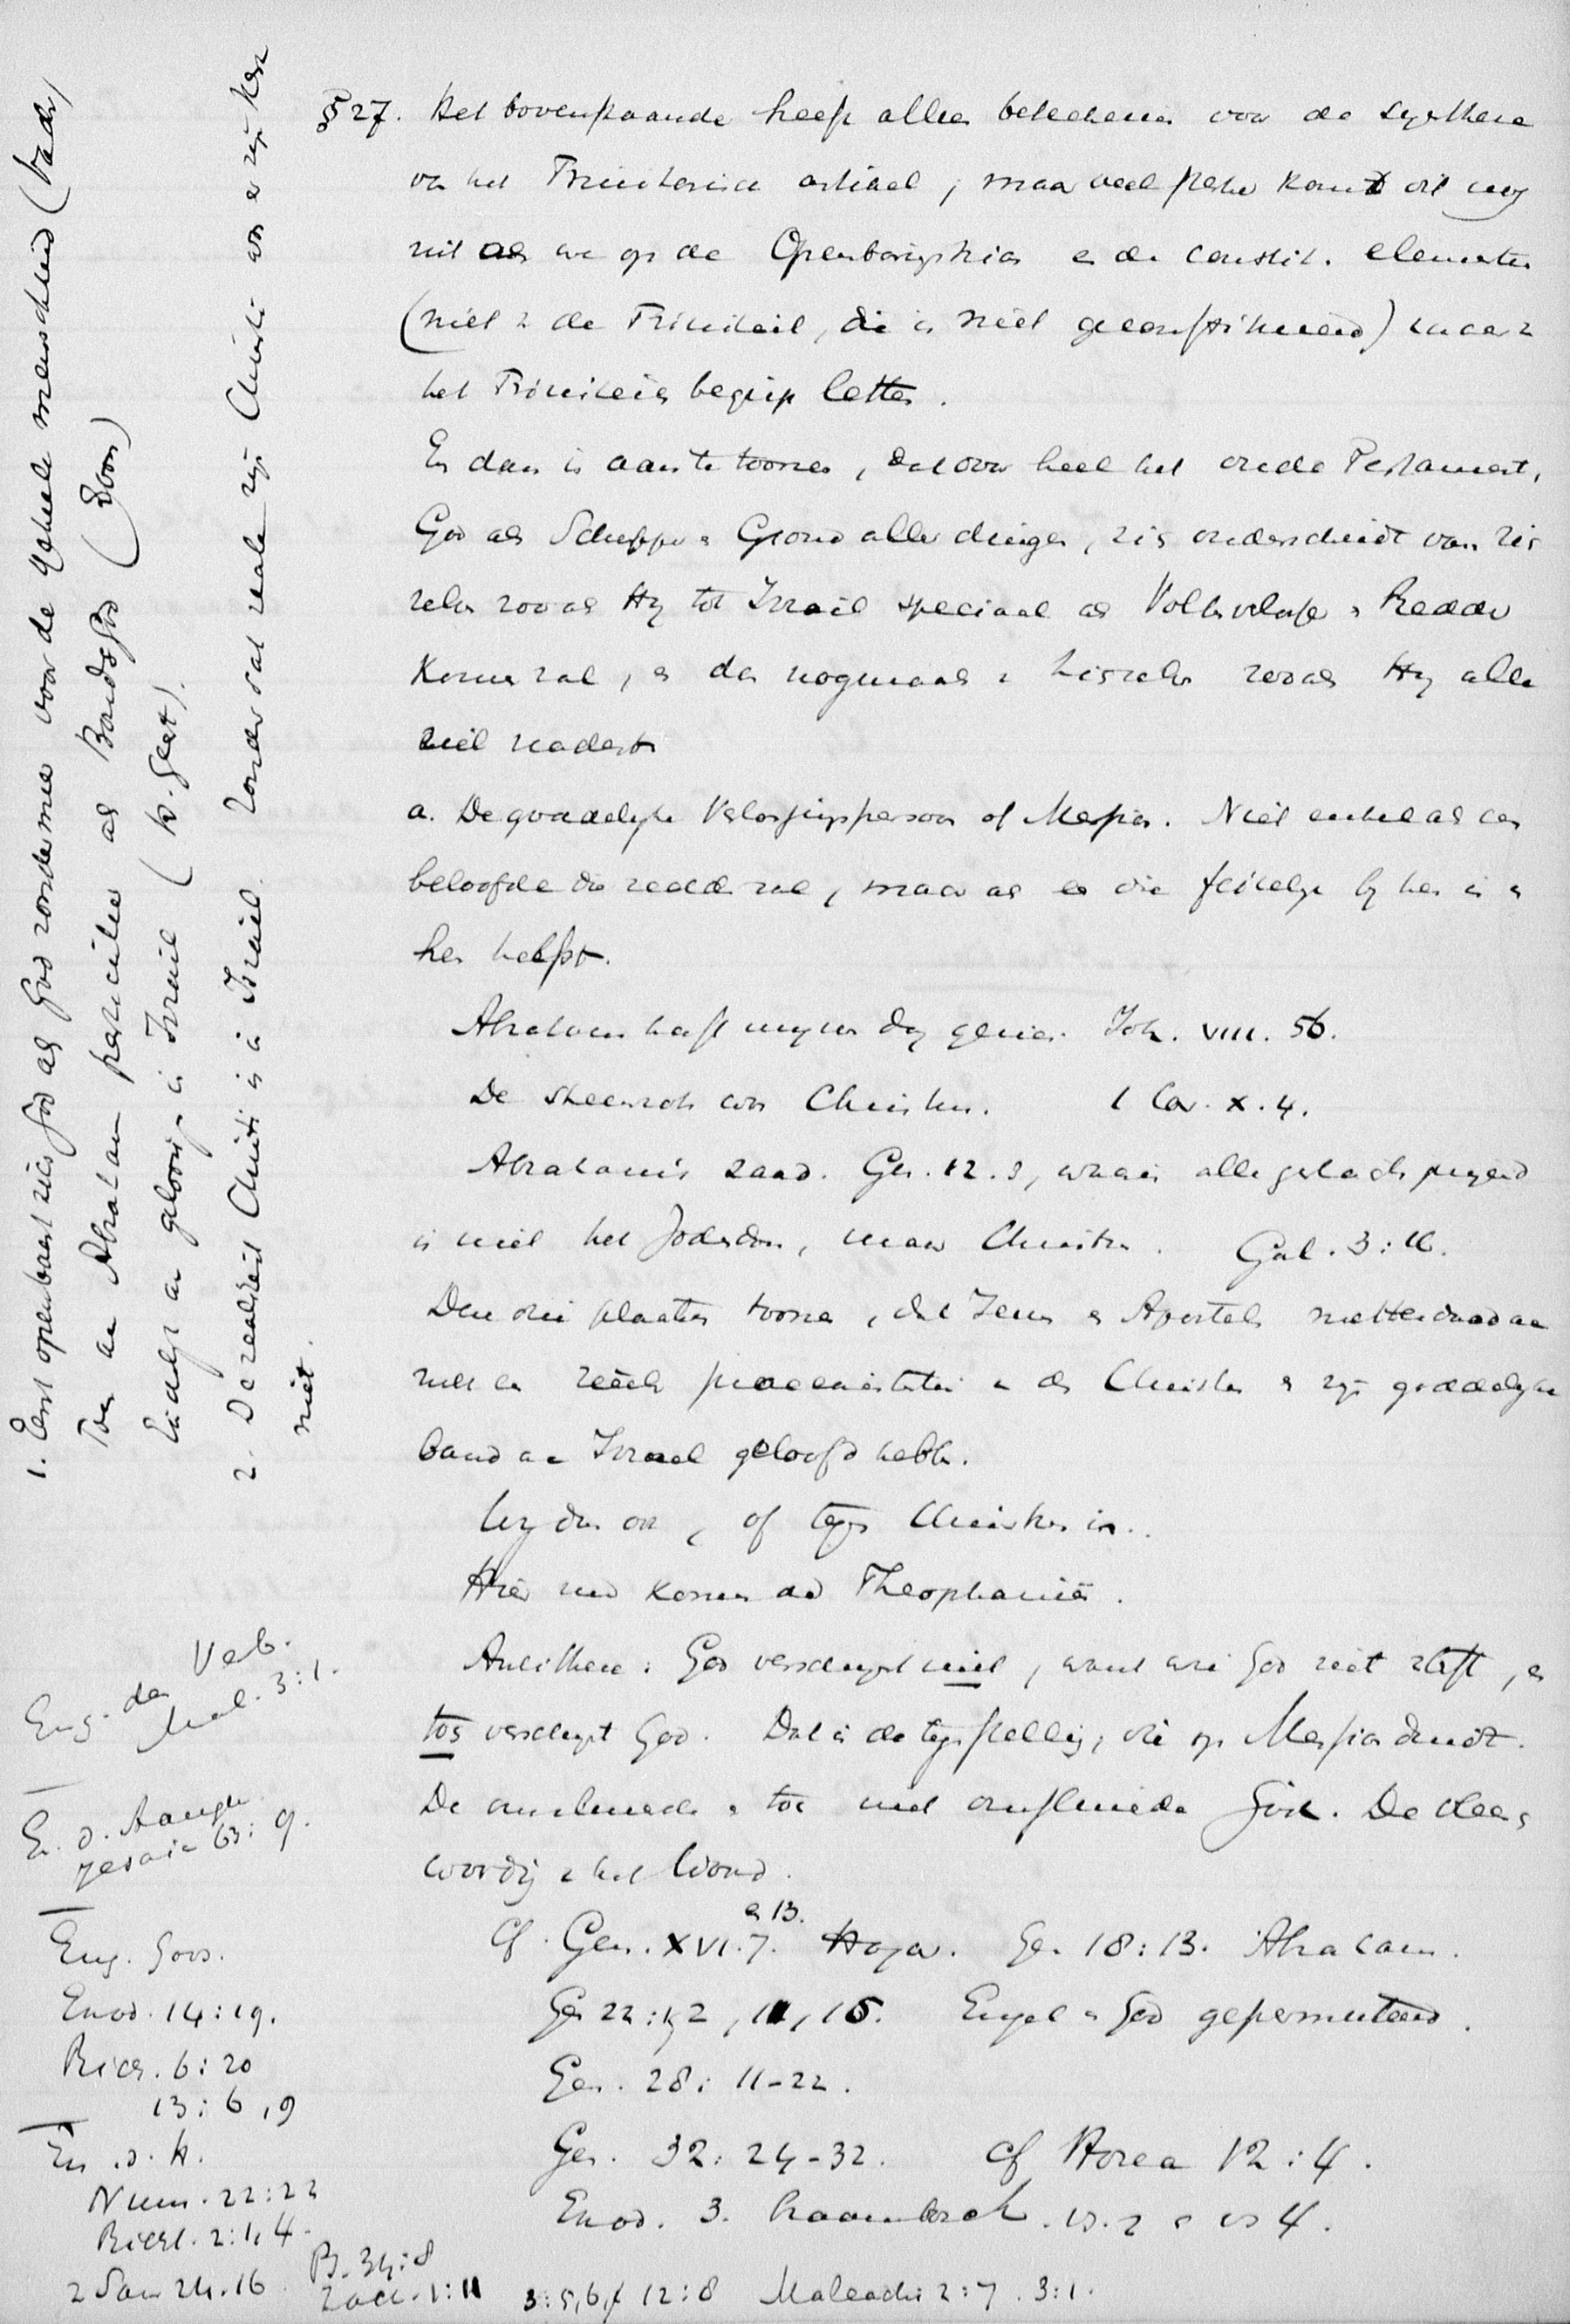 § 27. Het bovenstaande heeft alleen beteekenis voor de synthese
van het Trinitarisch artikel, maar veel sterker komt dit nog
uit als we op de Openbaringshist. en de constit. elementen
(niet v. de Triniteit, die is niet geconstitueerd) maar v
het Triniteits begrip letten.
En dan is aan te toonen, dat over heel het oude Testament,
God als Schepper en Grond aller dingen, zich onderscheidt van zich
zelven zooals Hy tot Israel speciaal als Volksverlosser en Redder
komen zal, en dan nogmaals v zichzelven zooals Hy alle
ziel nadert
a. De goddelyke Verlossingspersoon of Messias. Niet enkel als een
beloofde die redden zal, maar als een die feitelyk by hen is en
hen helpt.
Abraham heeft mynen dag gezien. Joh. VIII. 56.
De steenrots was Christus. 1 Cor. X. 4.
Abraham's zaad. Gen. 12.3, waarin alle geslacht gezegend
is niet het Jodendom, maar Christus. Gal. 3:16.
Deze drie plaatsen toonen, dat Jezus en Apostels metterdaad aan
een reëele praeexistentie v den Christus en zyn goddelyken
band aan Israel geloofd hebben.
Wy dus ook, of tegen Christus in..
Hier nu komen de Theophanieën.
Antithese: God verschynt niet, want wie God ziet sterft, en
toch verschynt God. Dat is de tegenstelling, die op Messias duidt.
De onzienende en toch
woording v het Woord.
Cf. Gen. XVI.7. en 13. Hagar. Gen 18:13. Abraham.
Gen 22:1, 2, 11, 15. Engel en God gepermuteerd.
Gen. 28: 11-22.
Gen. 32: 24-32. cf Hosea 12:4.
Exod. 3. Braambosch. vs. 2 en vs 4.
3:5,6, 12:8 Maleachi 2:7. 3:1.
1. Eerst openbaart zich God als God zonder meer voor de geheele menschheid (Vader)
Toen aan Abraham particulier als Bondsgod (Zoon)
Eindelyk aan geloovigen in Israel (H. Geest).
2. De realiteit Christi is in Israel. Zonder dat reale zyn Christi was er zyn Kerk
niet.
Eng. des Verb.
Mal. 3:1.
E. d. Aangez.
Jesaia 63:9.
Eng. Gods.
Exod. 14:19.
Richt. 6:20
13:6,9
En. d. H.
Num. 22:22
Richt. 2:1,4.
2 Sam 24.16
Ps. 34:8
Zach. 1:11